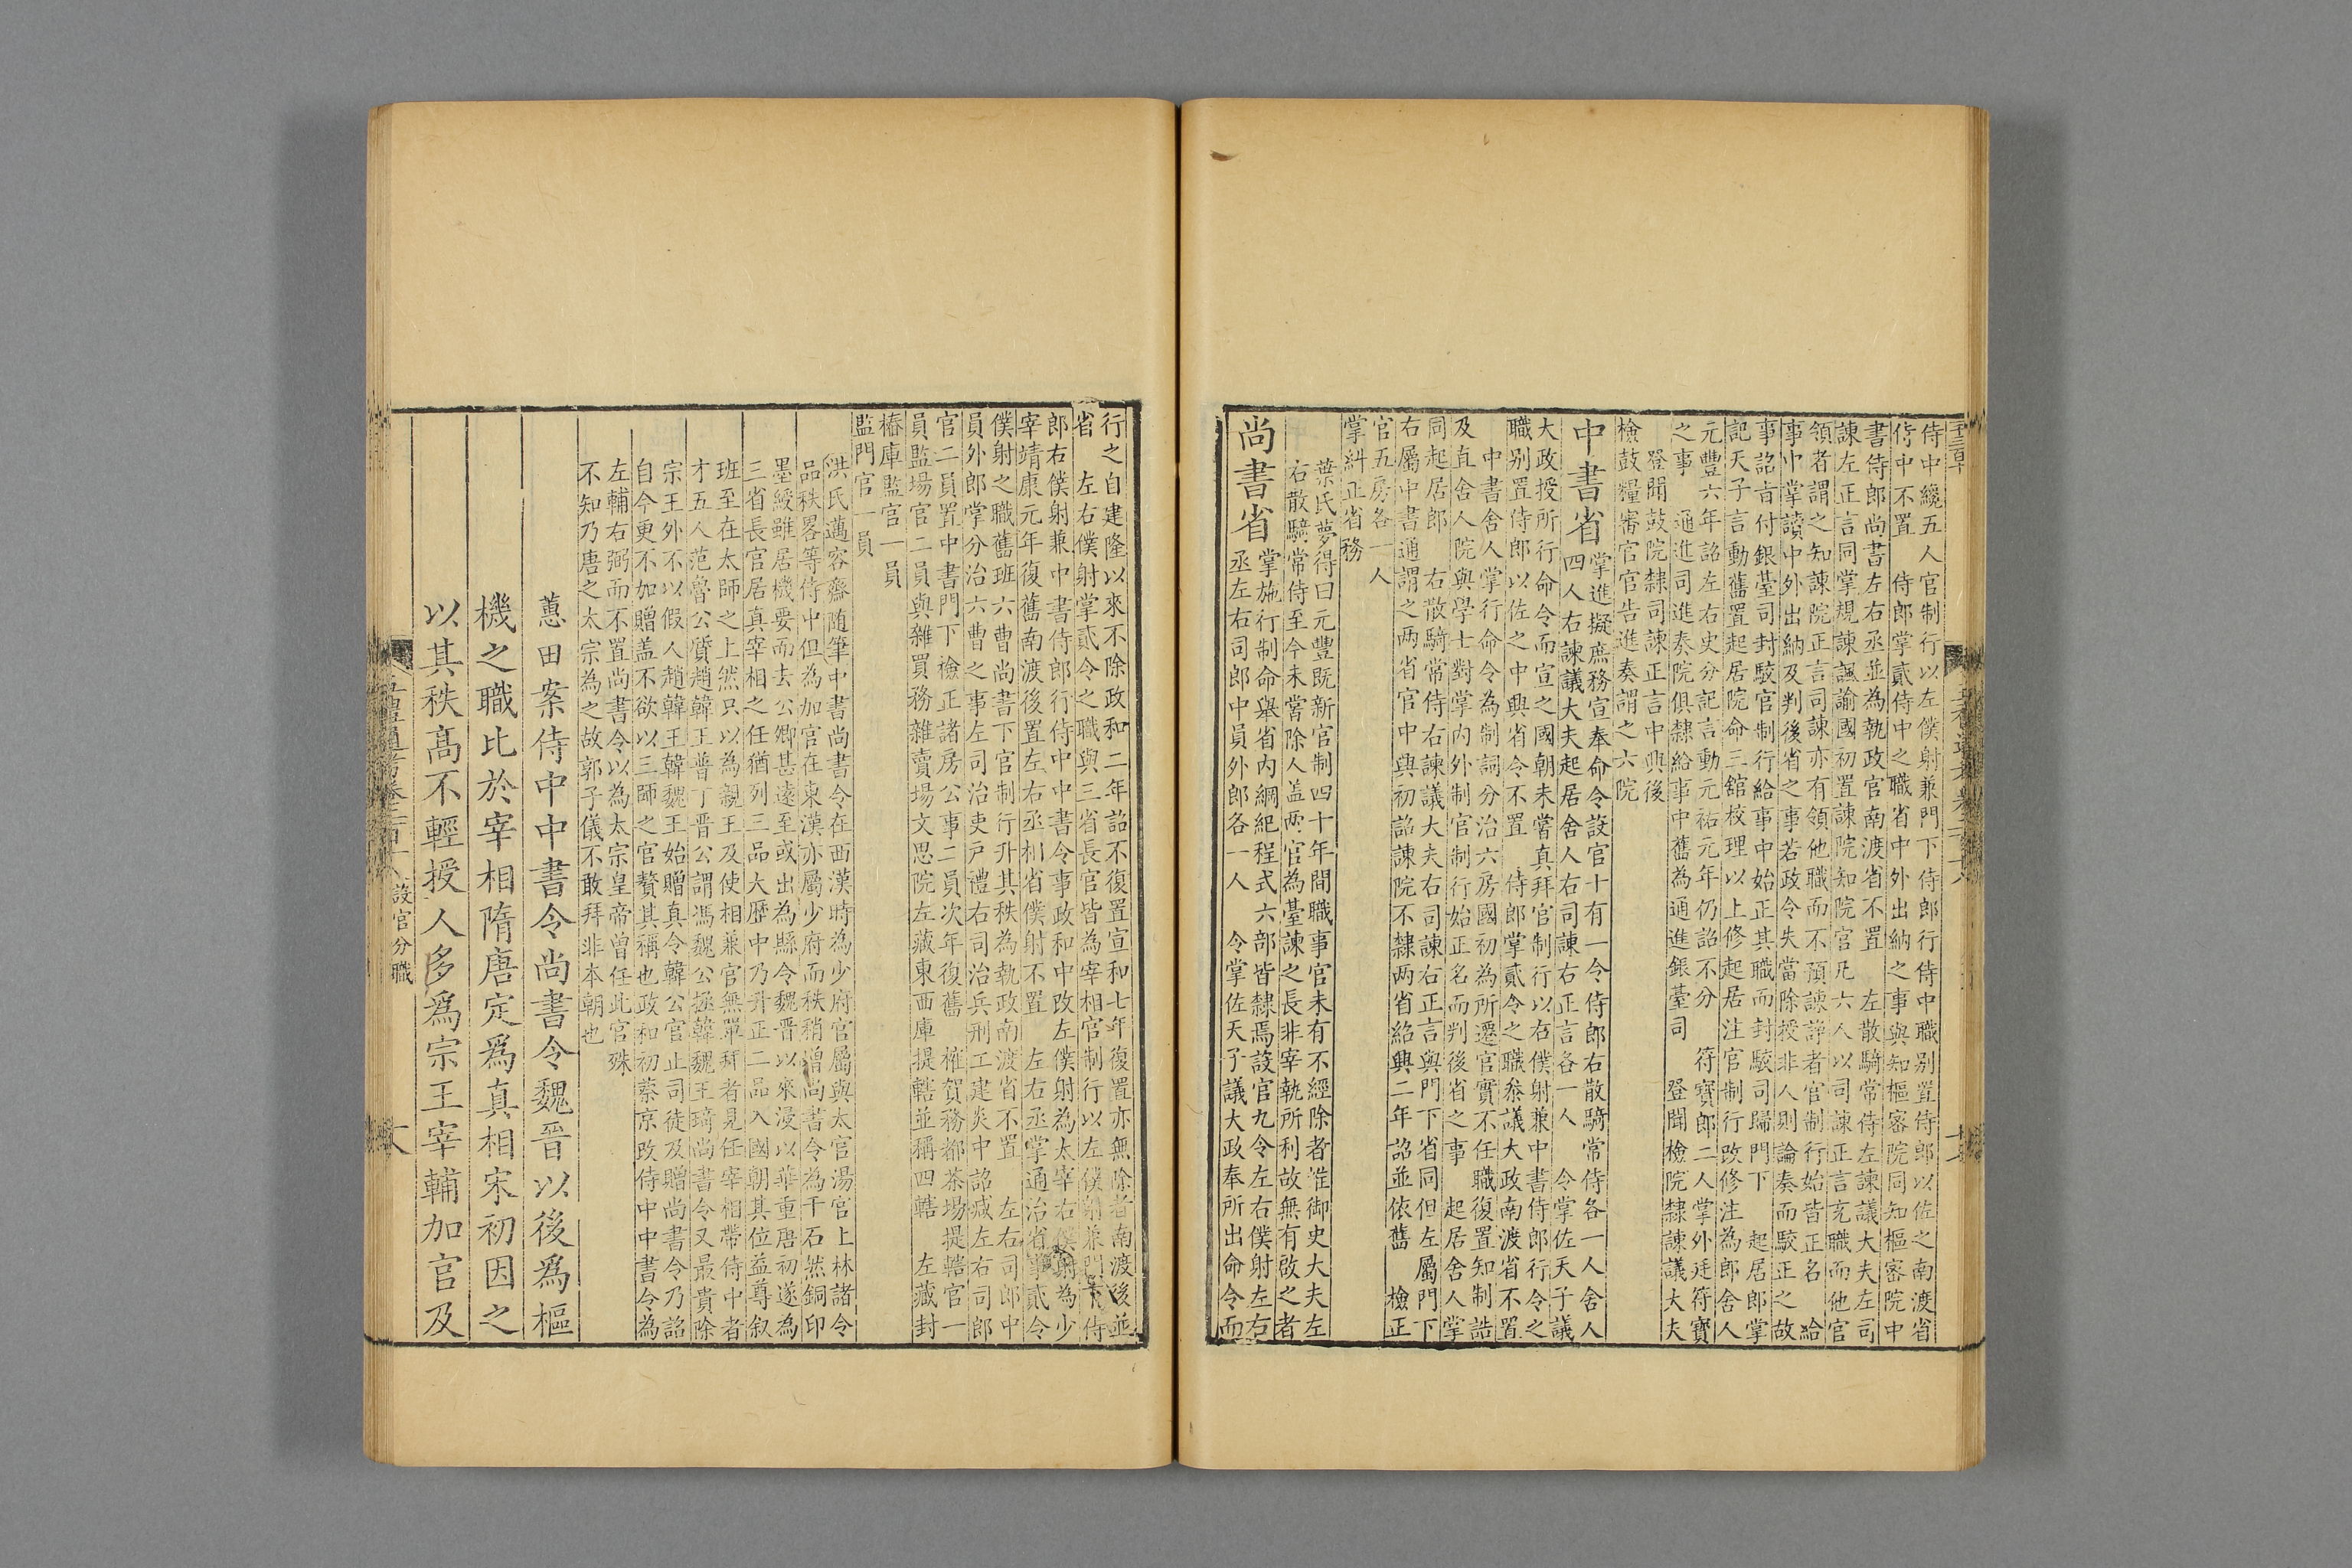 侍中纔五人官制行以左僕射兼門下侍郎行侍中職别置侍郎以佐之南渡省
侍中不置　侍郎掌貳侍中之職省中外出納之事與知樞密院同知樞密院中
書侍郎尚書左右丞並為執政官南渡省不置　左散騎常侍左諫議大夫左司
諫左正言同掌規諫諷諭國初置諫院知院官凡六人以司諫正言充職而他官
領者謂之知諫院正言司諫亦有領他職而不預諫諍者官制行始皆正名　給
事中掌讀中外出納及判後省之事若政令失當除授非人則論奏而駁正之故
事詔旨付銀臺司封駁官制行給事中始正其職而封駁司歸門下　起居郎掌
記天子言動舊置起居院命三舘校理以上修起居注官制行改修注為郎舍人
元豐六年詔左右史分記言動元祐元年仍詔不分　符寶郎二人掌外廷符寶
之事　通進司進奏院俱隸給事中舊為通進銀臺司　登聞檢院隸諫議大夫
登聞鼓院隸司諫正言中興後
檢鼓糧審官官告進奏謂之六院
中書省
掌進擬庶務宣奉命令設官十有一令侍郎右散騎常侍各一人舍人
四人右諫議大夫起居舍人右司諫右正言各一人　令掌佐天子議
大政授所行命令而宣之國朝未嘗真拜官制行以右僕射兼中書侍郎行令之
職别置侍郎以佐之中興省令不置　侍郎掌貳令之職叅議大政南渡省不置
中書舍人掌行命令為制詞分治六房國初為所遷官實不任職復置知制誥
及直舍人院與學士對掌内外制官制行始正名而判後省之事　起居舍人掌
同起居郎　右散騎常侍右諫議大夫右司諫右正言與門下省同但左屬門下
右屬中書通謂之两省官中興初詔諫院不隸两省紹興二年詔並依舊　檢正
官五房各一人
掌糾正省務
葉氏夢得曰元豐既新官制四十年間職事官未有不經除者惟御史大夫左
右散騎常侍至今未嘗除人盖两官為臺諫之長非宰執所利故無有啟之者
尚書省
掌施行制命舉省内綱紀程式六部皆隸焉設官九令左右僕射左右
丞左右司郎中員外郎各一人　令掌佐天子議大政奉所出命令而
行之自建隆以來不除政和二年詔不復置宣和七年復置亦無除者南渡後並
省　左右僕射掌貳令之職與三省長官皆為宰相官制行以左僕射兼門下侍
郎右僕射兼中書侍郎行侍中中書令事政和中改左僕射為太宰右僕射為少
宰靖康元年復舊南渡後置左右丞相省僕射不置　左右丞掌通治省事貳令
僕射之職舊班六曹尚書下官制行升其秩為執政南渡省不置　左右司郎中
員外郎掌分治六曹之事左司治吏户禮右司治兵刑工建炎中詔減左右司郎
官二員置中書門下檢正諸房公事二員次年復舊　榷貨務都茶場提轄官一
員監場官二員與雜買務雜賣場文思院左藏東西庫提轄並稱四轄　左藏封
樁庫監官一員
監門官一員
洪氏邁容齋随筆中書尚書令在西漢時為少府官屬與太官湯官上林諸令
品秩畧等侍中但為加官在東漢亦屬少府而秩稍增尚書令為千石然銅印
墨綬雖居機要而去公卿甚遠至或出為縣令魏晋以來浸以華重唐初遂為
三省長官居真宰相之任猶列三品大歷中乃升正二品入國朝其位益尊叙
班至在太師之上然只以為親王及使相兼官無單拜者見任宰相帶侍中者
才五人范魯公質趙韓王普丁晋公謂馮魏公拯韓魏王琦尚書令又最貴除
宗王外不以假人趙韓王韓魏王始贈真令韓公官止司徒及贈尚書令乃詔
自今更不加贈盖不欲以三師之官贅其稱也政和初蔡京改侍中中書令為
左輔右弼而不置尚書令以為太宗皇帝曾任此官殊
不知乃唐之太宗為之故郭子儀不敢拜非本朝也
蕙田案侍中中書令尚書令魏晋以後爲樞
機之職比於宰相隋唐定爲真相宋初因之
以其秩高不輕授人多爲宗王宰輔加官及
設官分職